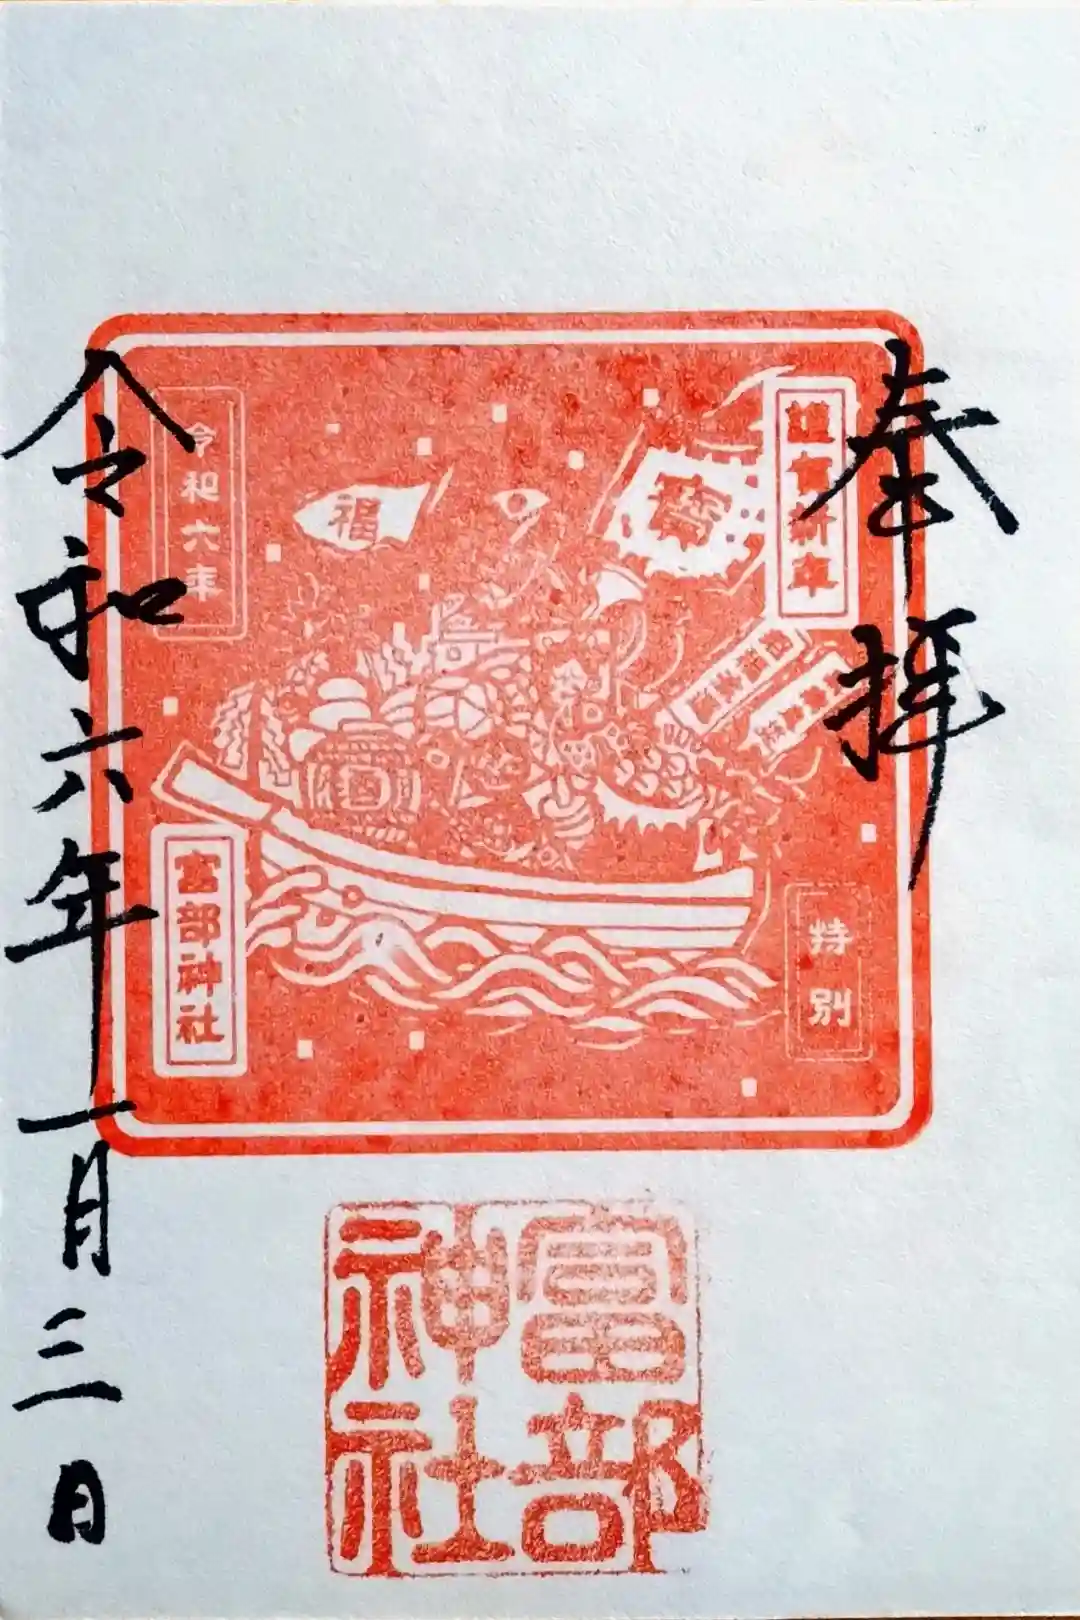 奉拝
謹賀新年
寳
福
令和六年
特別
富部神社
富部神社
令和六年一月三日